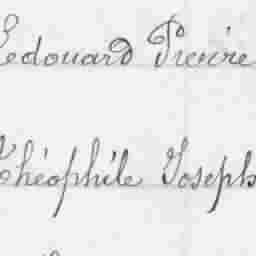 Ledouard Pierre
Théophile Joseph